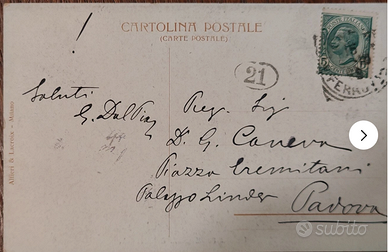 CARTOLINA POSTALE
(CARTE POSTALE)
21
Saluti
G. Dal Piaz
Preg. Sig
Dr. G. Caneva
Piazza Eremitani
Palazzo Linder
Padova
Alfieri & Lacroix - Milano
subito